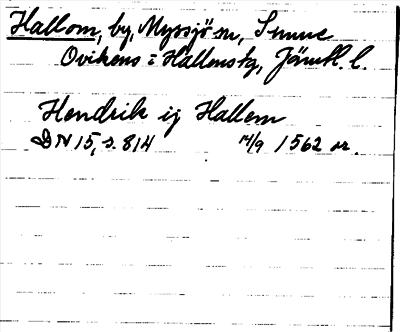 Hallom, by, Myssjö sn, Sunne
Ovikens o Hallens tg, Jämtl. l.
Hendrik ij Hallem
DN 15, s. 814 14/9 1562 or.